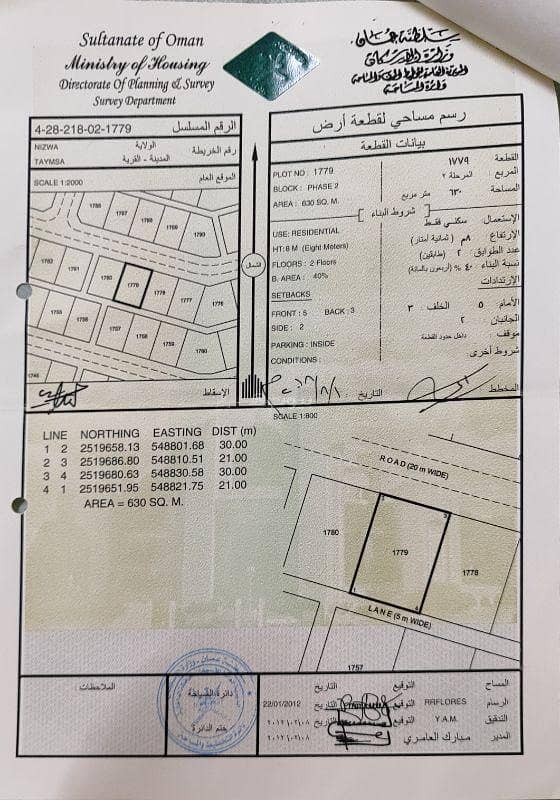 Sultanate of Oman
Ministry of Housing
Directorate Of Planning & Survey
Survey Department
سلطنة عمان
وزارة الإسكان
دائرة المساحة
4-28-218-02-1779
الرقم المسلسل
NIZWA
TAYMSA
الولاية
المدينة - القرية
رقم الخريطة
SCALE 1:2000
الموقع العام
1779
1778
1777
1776
1780
1781
1757
1758
1759
1760
الشمال
الإسقاط
رسم مساحي لقطعة أرض
بيانات القطعة
PLOT NO : 1779
القطعة ١٧٧٩
BLOCK : PHASE 2
المربع المرحلة ٢
AREA : 630 SQ. M.
المساحة ٦٣٠ متر مربع
شروط البناء
USE: RESIDENTIAL
الإستعمال سكني فقط
HT: 8 M (Eight Meters)
الارتفاع ٨م (ثمانية أمتار)
FLOORS : 2 Floors
عدد الطوابق ٢ (طابقين)
B. AREA : 40%
نسبة البناء ٤٠ % (أربعون بالمائة)
SETBACKS
الإرتدادات
FRONT : 5 BACK : 3
الأمام ٥ الخلف ٣
SIDE : 2
الجانبان ٢
PARKING : INSIDE
موقف داخل حدود القطعة
CONDITIONS :
شروط أخرى
المخطط
التاريخ
LINE NORTHING EASTING DIST (m)
1 2 2519658.13 548801.68 30.00
2 3 2519686.80 548810.51 21.00
3 4 2519680.63 548830.58 30.00
4 1 2519651.95 548821.75 21.00
AREA = 630 SQ. M.
SCALE 1:800
ROAD (20 m WIDE)
1780
1779
1778
LANE (5 m WIDE)
1757
الملاحظات:
دائرة المساحة
ختم الدائرة
المساح التوقيع التاريخ
الرسام RRFLORES التوقيع التاريخ 22/01/2012
التدقيق Y.A.M. التوقيع التاريخ
المدير مبارك العامري